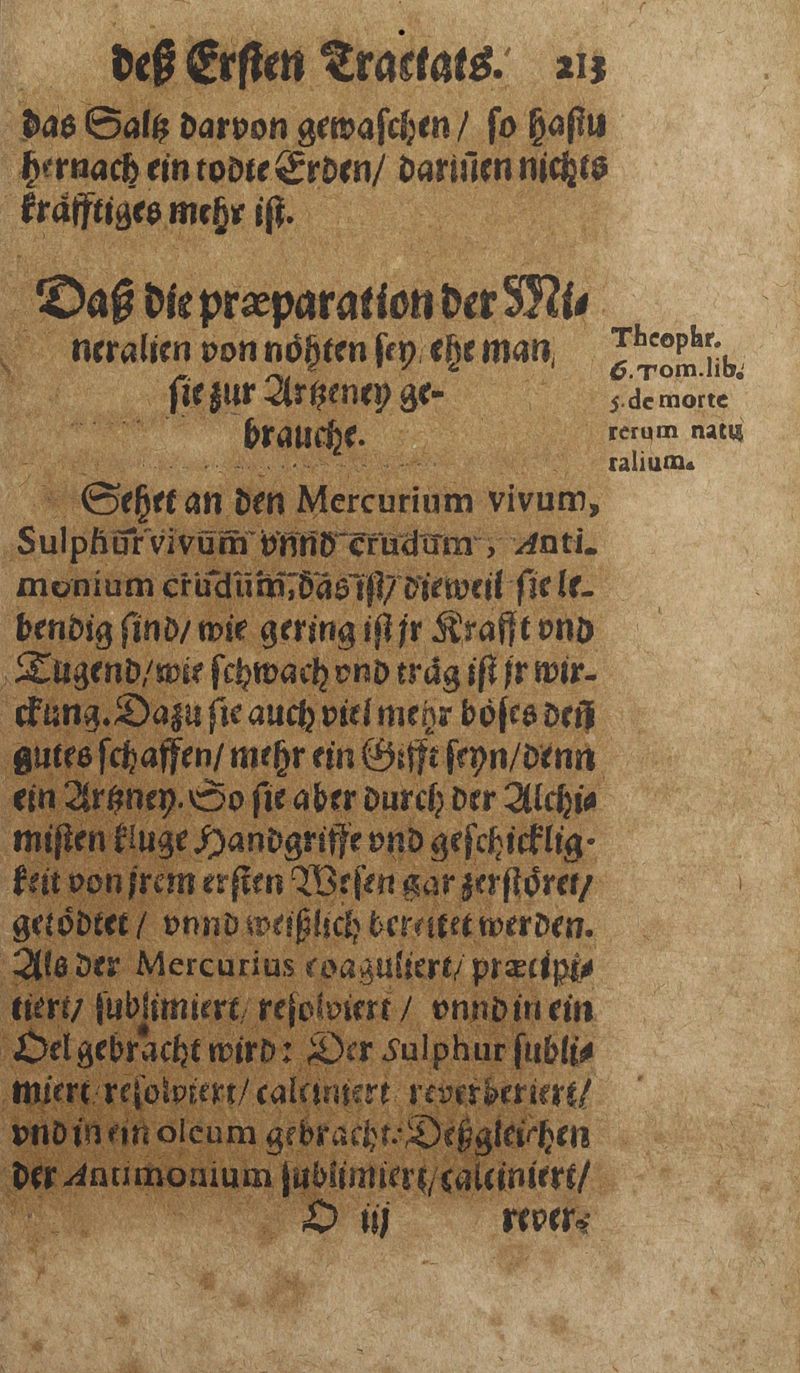 deß Ersten Tractats. 213
das Saltz darvon gewaschen / so hastu
hernach ein todte Erden / dariñen nichts
kräfftiges mehr ist.
Daß die præparation der Mi⸗
neralien von nöhten sey / ehe man
sie zur Artzeney ge-
brauche.
Theophr.
6. Tom. lib.
5. de morte
rerum natu
ralium.
Sehet an den Mercurium vivum,
Sulphur vivum vnnd crudum, Anti-
monium crudum, das ist / dieweil sie le-
bendig sind / wie gering ist jr Krafft vnd
Tugend / wie schwach vnd träg ist jr wir-
ckung. Dazu sie auch viel mehr böses deñ
gutes schaffen / mehr ein Gifft seyn / denn
ein Artzney. So sie aber durch der Alchi⸗
misten kluge Handgriffe vnd geschicklig-
keit von jrem ersten Wesen gar zerstöret /
getödtet / vnnd weißlich bereitet werden.
Als der Mercurius coaguliert / præcipi⸗
tiert / sublimiert / resolviert / vnnd in ein
Oel gebracht wird: Der Sulphur subli⸗
miert / resolviert / calciniert / reverberiert /
vnd in ein oleum gebracht: Deßgleichen
der Antimonium sublimiert / calciniert /
O iij rever⸗